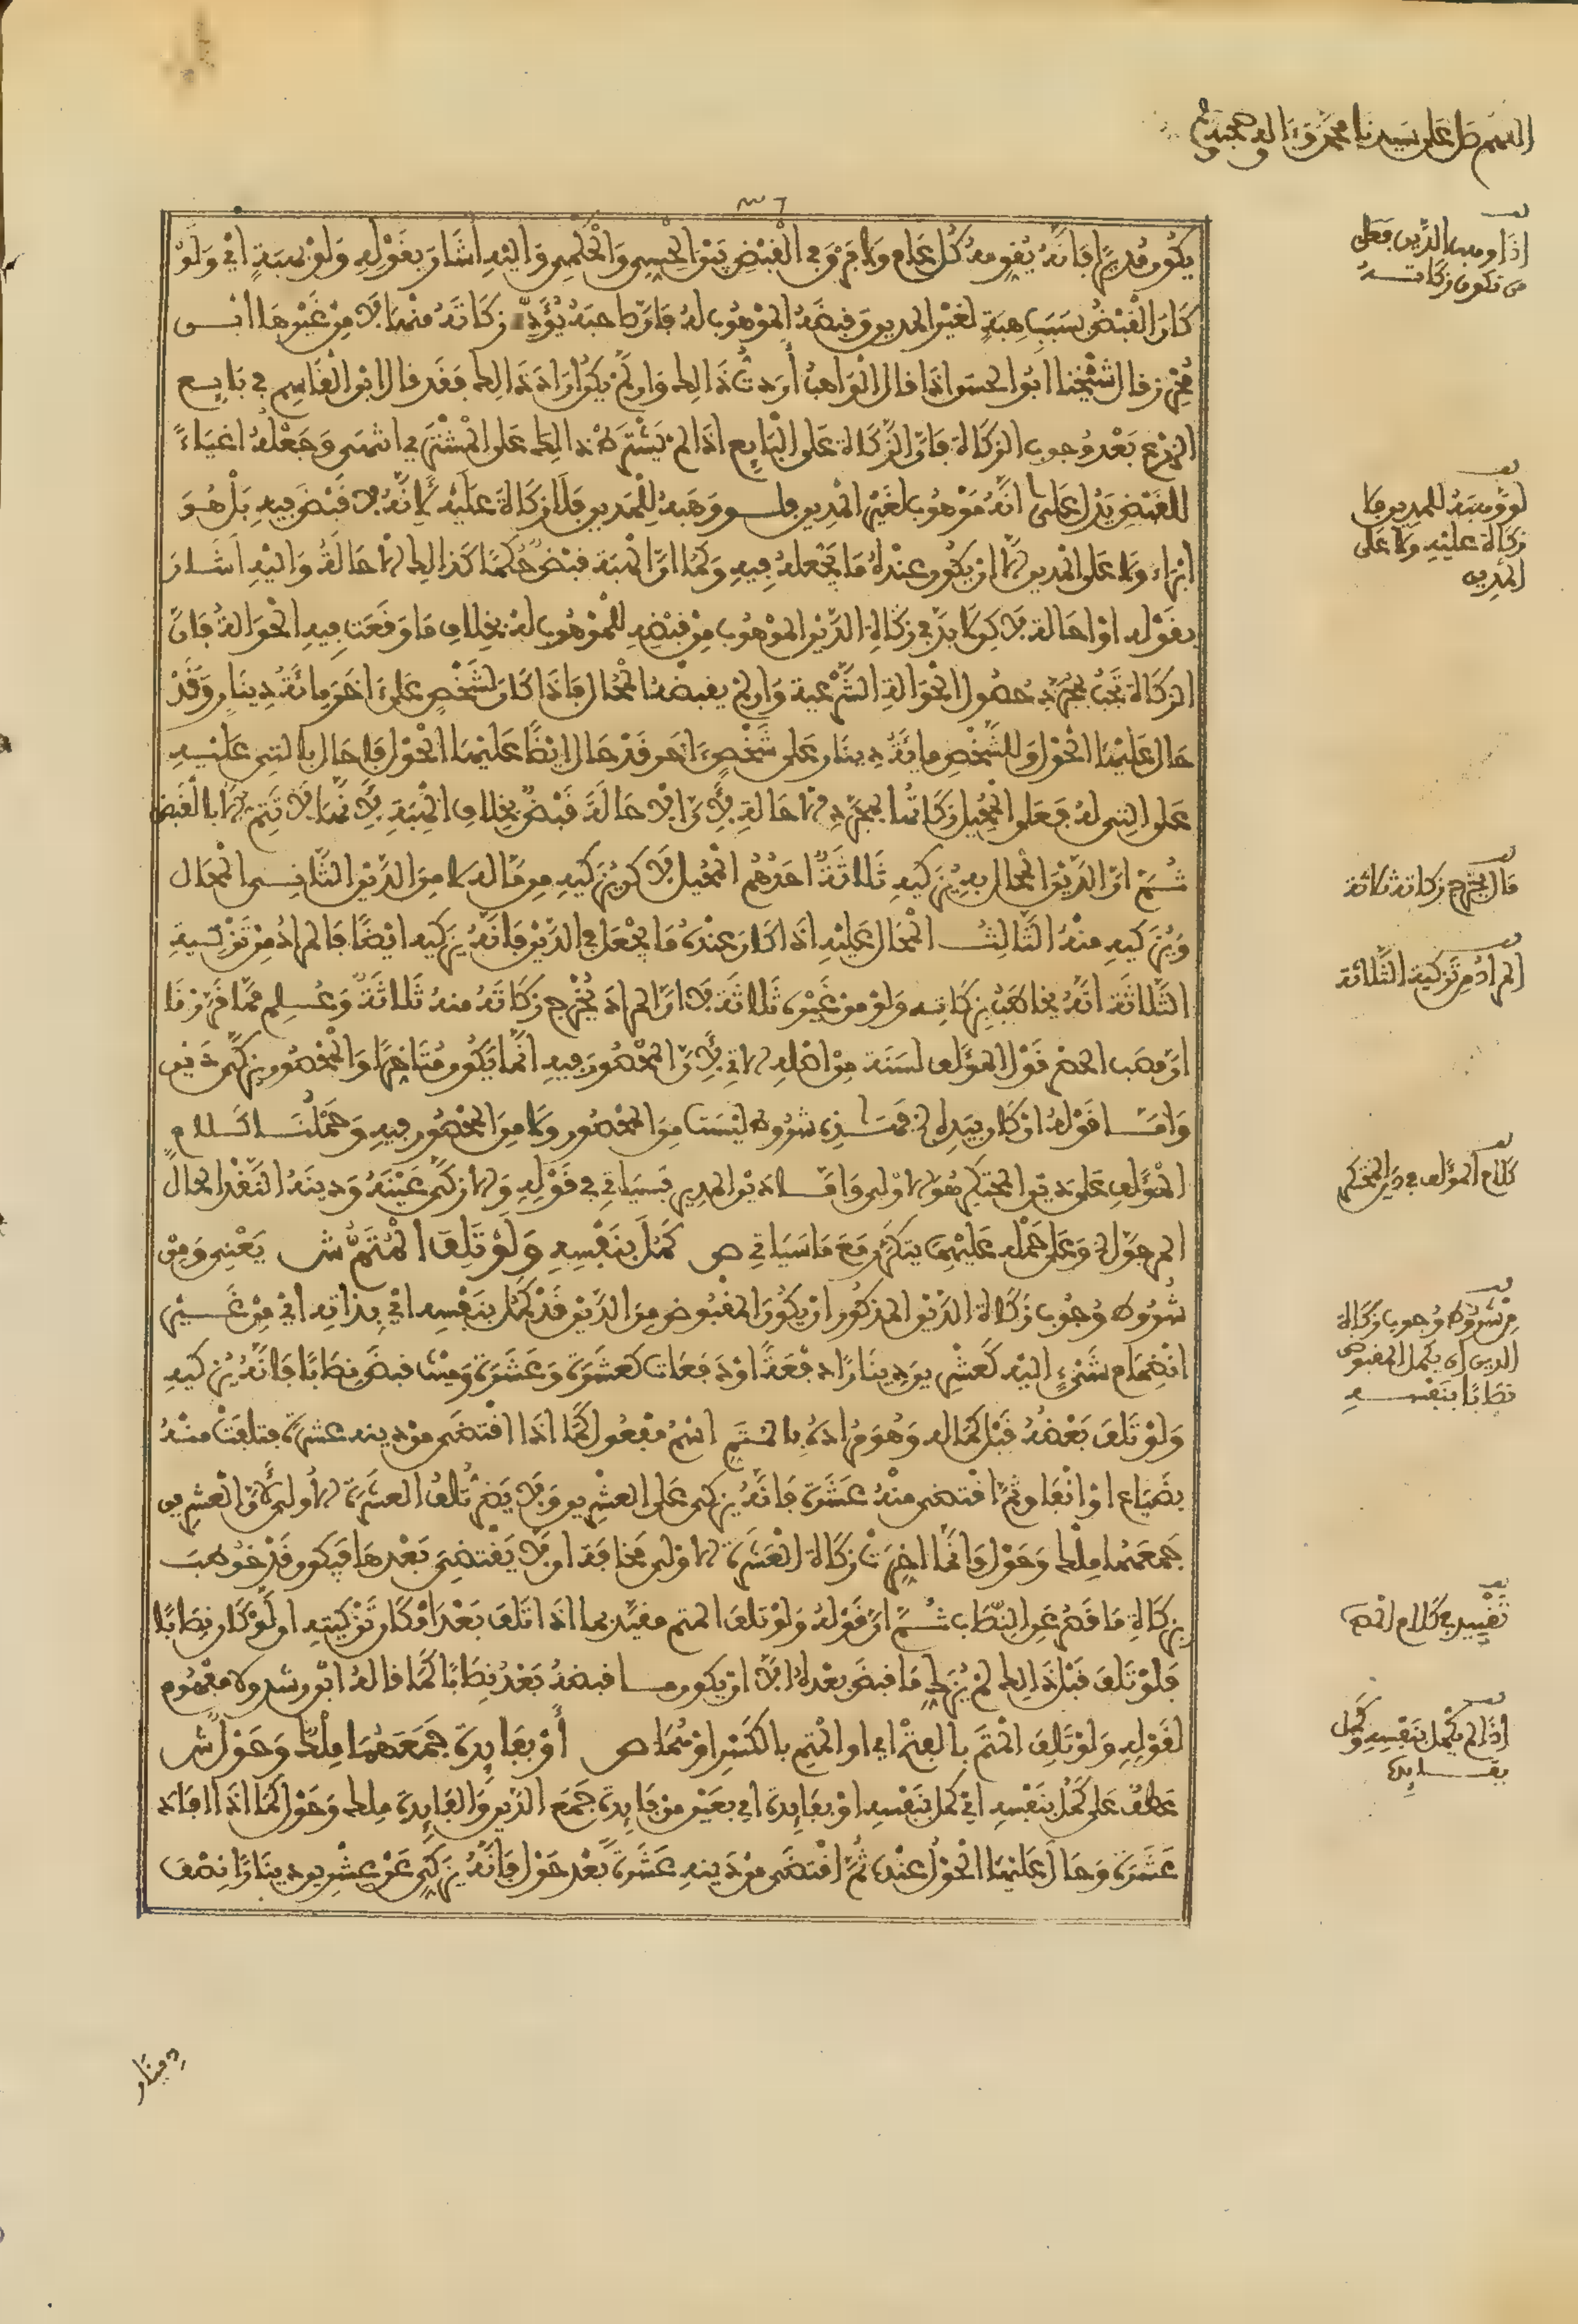 اللهم صل على سيدنا محمد وءاله وصحبه
يكون مديرا فإنه يقومه كل عام ولا فرق في القبض بين الحسي والحكمي وإليه أشار بقوله ولو بهبة أي ولو
كان القبض بسبب هبة لغير المدين وقبضه الموهوب له فإن صاحبه يؤدي زكاته منها لا من غيرها ابن
محرز قال شيخنا أبو الحسن إذا قال الواهب أردت ذلك وإن لم يكن أراد ذلك فقد قال ابن القاسم في بايع
الزرع بعد وجوب الزكاة فإن الزكاة على البايع إذا لم يشترط ذلك على المشتري انتهى وجعله اغياء
للقبض يدل على أنه موهوب لغير المدين فلو وهبه للمدين فلا زكاة عليه لأنه لا قبض فيه بل هو
إبراء ولا على المدين إلا أن يكون عنده ما يجعله فيه وكما أن الهبة قبض حكما كذلك الإحالة وإليه أشار
بقوله أو إحالة لا كن لا بد في زكاة الدين الموهوب من قبضه للموهوب له بخلاف ما وقعت فيه الحوالة فإن
الزكاة تجب بمجرد حصول الحوالة الشرعية وإن لم يقبضها المحال فإذا كان لشخص على ءاخر مائة دينار وقد
حال عليها الحول وللشخص مائة دينار على شخص ءاخر قد حال أيضا عليها الحول فأحال بالتي عليه
على التي له فعلى المحيل زكاتها بمجرد الإحالة لأن الإحالة قبض بخلاف الهبة لأنها لا تتم إلا بالقبض
ثم إن الدين المحال به يزكيه ثلاثة أحدهم المحيل لا كن يزكيه من ماله لا من الدين الثاني المحال
ويزكيه منه الثالث المحال عليه إذا كان عنده ما يجعل في الدين فإنه يزكيه أيضا فالمراد من تزكية
الثلاثة أنه يخاطب بزكاته ولو من غيره ثلاثة لا أن المراد يخرج زكاته منه ثلاثة وعلم مما قررنا
أن مصب الحصر قول المؤلف لسنة من أصله الآتي لأن المحصور فيه إنما يكون متأخرا والمحصور يزكى دين
وأما قوله إن كان بيده الخ فهذه شروط ليست من المحصور ولا من المحصور فيه وحملنا كلام
المؤلف على دين المحتكر هو الأولى وأما دين المدير فسياتي في قوله وإلا زكى عينه ودينه النقد الحال
المرجو الخ وعلى حمله عليهما يتكرر مع ما سياتي ص كمل بنفسه ولو تلف المتم ش يعني ومن
شروط وجوب زكاة الدين المذكور أن يكون المقبوض من الدين قد كمل بنفسه أي بذاته أي من غير
انضمام شيء إليه كعشرين دينارا دفعة أو دفعات كعشرة وعشرة وحيث قبض نصابا فإنه يزكيه
ولو تلف بعضه قبل كماله وهو مراده بالمتم اسم مفعول كما إذا اقتضى من دينه عشرة فتلفت منه
بضياع أو إنفاق ثم اقتضى منه عشرة فإنه يزكي على العشرين ولا يضر تلف العشرة الأولى لأن العشرين
جمعهما ملك وحول وإنما أخرت زكاة العشرة الأولى مخافة أن لا يقتضي بعدها فيكون قد خوطب
بزكاة ما قصر عن النصاب ثم إن قوله ولو تلف المتم مقيد بما إذا تلف بعد إمكان تزكيته أن لو كان نصابا
فلو تلف قبل ذلك لم يزك ما قبض بعده إلا أن يكون ما قبضه بعد نصابا كما قاله ابن رشد ولا مفهوم
لقوله ولو تلف المتم بالفتح أي أو المتم بالكسر أو هما ص أو بفايدة جمعهما ملك وحول ش
عطف على كمل بنفسه أي كمل بنفسه أو بفايدة أي بعين من فايدة جمع الدين والفايدة ملك وحول كما إذا أفاد
عشرة وحال عليها الحول عنده ثم اقتضى من دينه عشرة بعد حول فإنه يزكي عن عشرين دينارا نصف
دينار
قف
إذا وهب الدين فعلى
من تكون زكاته
قف
لو وهبه للمدين فلا
زكاة عليه ولا على
المدين
قف
قال يخرج زكاته ثلاثة
قف
المراد من تزكية الثلاثة
قف
كلام المؤلف في دين المحتكر
قف
من شروط وجوب زكاة
الدين أن يكمل المقبوض
نصابا بنفسه
قف
تقييد في كلام المص
قف
إذا لم يكمل بنفسه وكمل
بفايدة